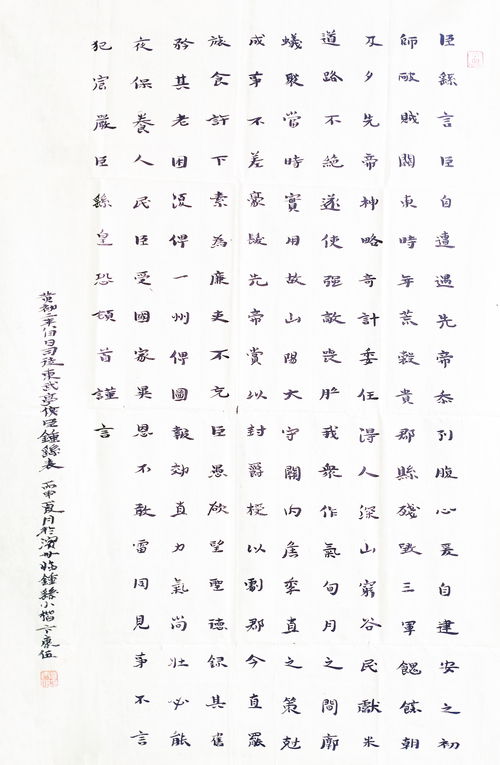 臣繇言臣自遭遇先帝忝列腹心爰自建安之初
師破賊關東時年荒穀貴郡縣殘毀三軍餽餘朝
及夕先帝神略奇計委任得人深山窮谷民獻米
道路不絕遂使強敵喪膽我眾作氣旬月之間廓
蟻聚當時實用故山陽大守關內侯季直之策尅
成事不差豪髮先帝賞以封爵授以劇郡今直罷
旅食許下素為廉吏不充臣愚欲望聖德錄其舊
矜其老困復俾一州俾圖報効直力氣尚壯必能
夜保養人民臣受國家異恩不敢雷同見事不言
犯宸嚴臣繇皇恐頓首謹言
黃初二年八月日司徒東武亭侯臣鍾繇表 丙申夏月於濱臨鍾繇小楷